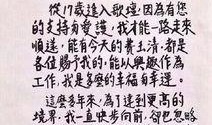 從17歲進入歌壇,因為有您
的支持與愛護,我才能一路走來
順遂,能有今天的費玉清,都是
各位賜予我的,能以興趣作為
工作,我是多麼的幸福與幸運。
這麼多年來,為了達到更高的
境界,我一直快步向前,卻也忽略